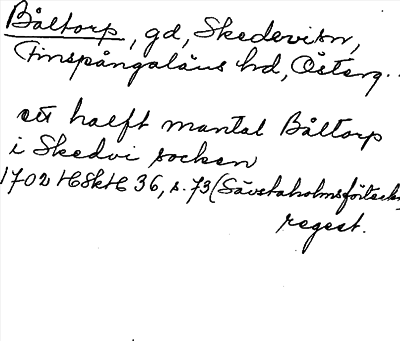 Båltorp, gd, Skedevi sn,
Finspångaläns hd, Österg.
ett halft mantal Båltorp
i Skedvi socken
1702 HSkH 36, s. 73 (Sävstaholmsförteckn.
regest.